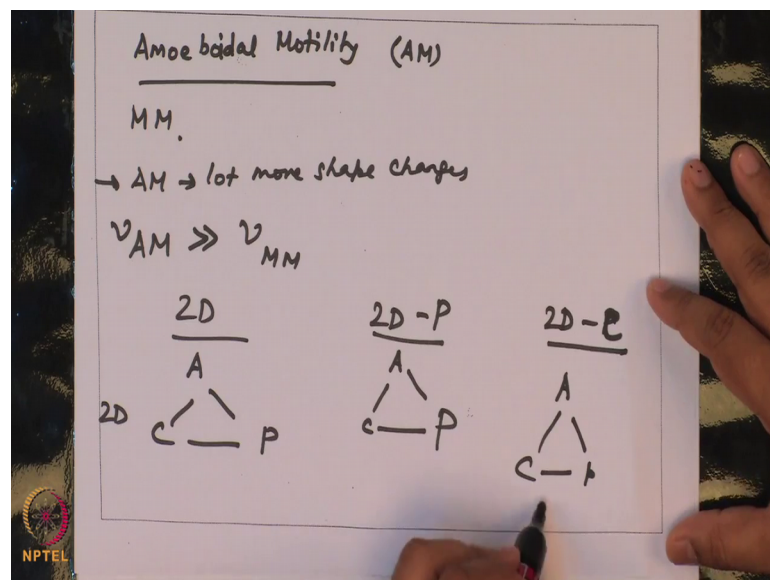 Amoeboidal Motility (AM)
MM.
→ AM → lot more shape changes
νAM >> νMM
2D 2D-P 2D-C
A A A
2D C — P C — P C — P
NPTEL